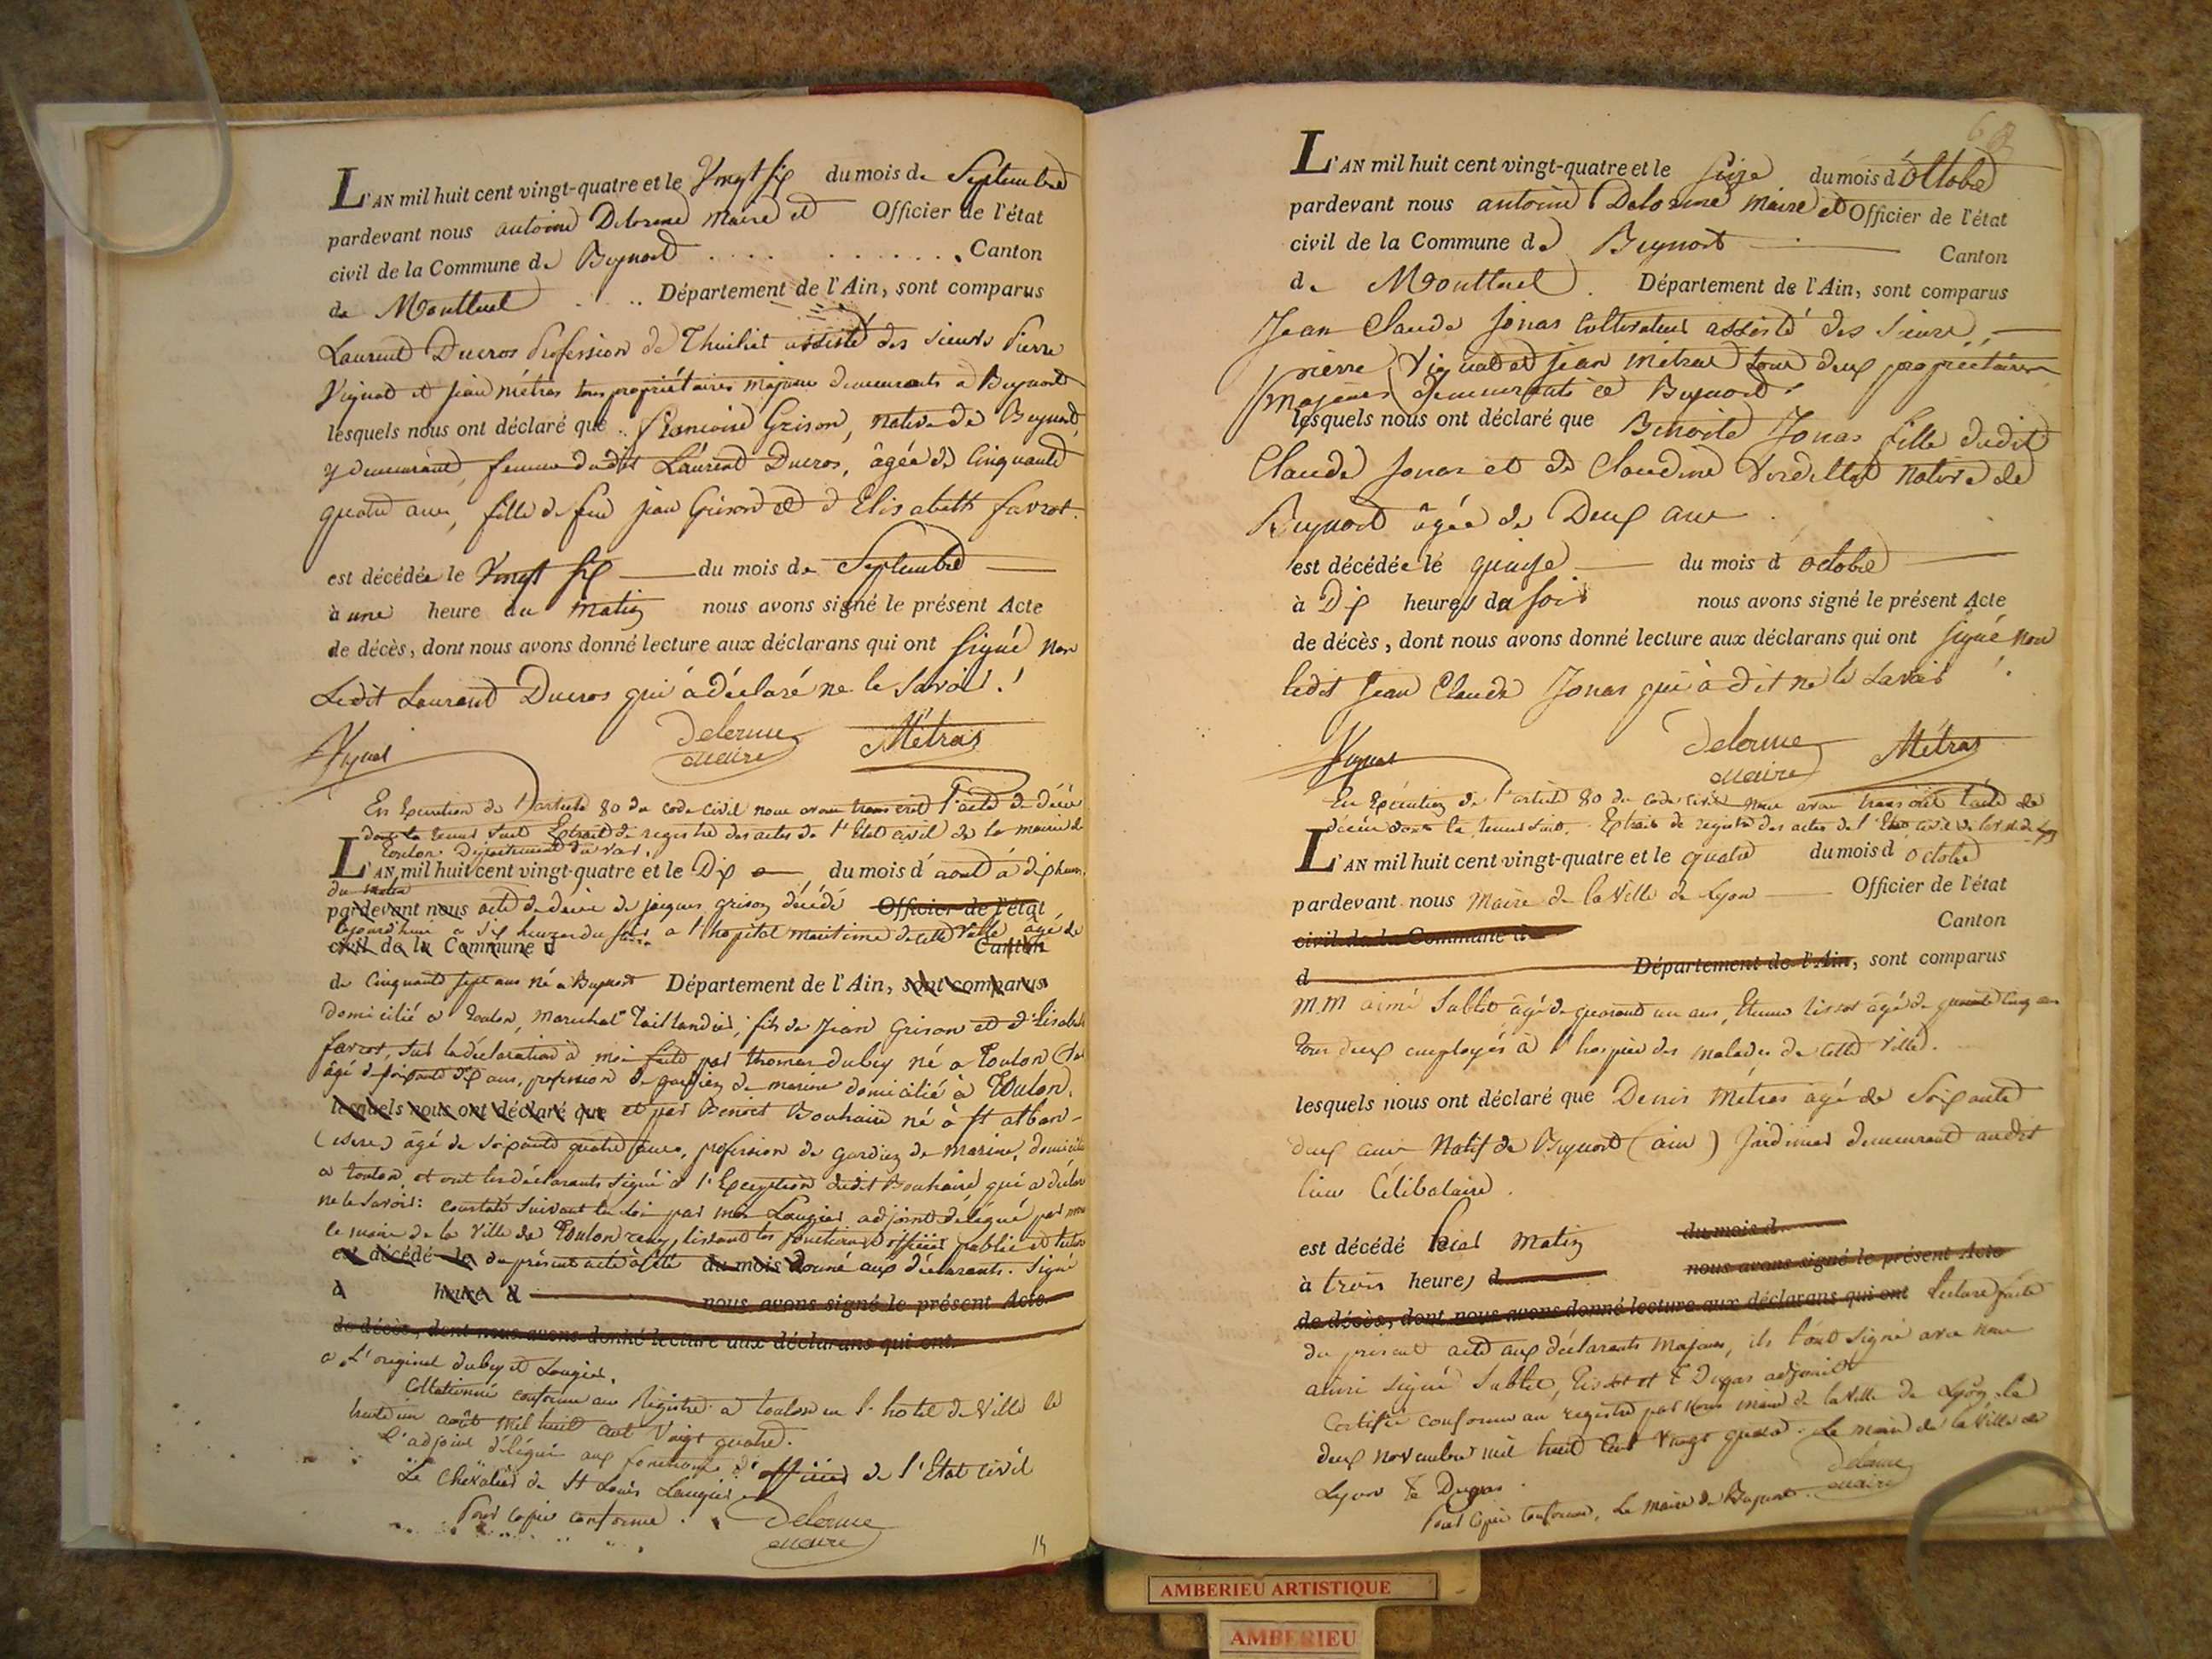 L'AN mil huit cent vingt-quatre et le Vingt six du mois de Septembre
pardevant nous antoine Delorme maire et Officier de l'état
civil de la Commune de Beynost Canton
de Montluel Département de l'Ain, sont comparus
Laurent Ducros Profession de Thuilier assisté des sieurs Pierre
Vignat et jean métras tous propriétaires majeurs demeurants à Beynost
lesquels nous ont déclaré que françoise Grison, native de Beynost,
y demeurant, femme dudit Laurent Ducros, âgée de Cinquante
quatre ans, fille de feu jean Grison et d'Elisabeth favrot.
est décédée le Vingt six du mois de Septembre
à une heure du matin nous avons signé le présent Acte
de décès, dont nous avons donné lecture aux déclarans qui ont signé non
Ledit Laurent Ducros qui à déclaré ne le savoir.
Vignat Delorme maire Métras
En Execution de l'article 80 du code civil nous avons transcrit l'acte de décès
dont la teneur suit Extrait de registre des actes de l'Etat civil de la mairie de
Toulon Département du var.
L'AN mil huit cent vingt-quatre et le Dix du mois d'août à dix heures
du matin
pardevant nous acte de décès de jacques grison décédé Officier de l'état
à six heures du à l'hopital maritime de cette ville âgé de
civil de la Commune d Canton
de Cinquante sept ans né a Beynost Département de l'Ain, sont comparus
domicilié a Toulon, Marechal Taillandier, fils de Jean Grison et d'Elisabeth
favrot, sur la déclaration à moi faite par thomas dubey né a Toulon
âgé de soixante dix ans, profession de gardien de marine domicilié à Toulon.
lesquels nous ont déclaré que et par Benoit Bouhaire né à st alban
(isere) âgé de soixante quatre ans, profession de gardien de marine, domicilié
a Toulon et ont les déclarants signé à l'Exception dudit Bouhaire qui a déclaré
ne le savoir: constaté suivant la loi par moi Laugier adjoint délégué par
le maire de la ville de Toulon remplissant les fonctions d'officier public et lecture
est décédé le du présent acte à été du mois donné aux déclarants. Signé
à heure d nous avons signé le présent Acte
de décès, dont nous avons donné lecture aux déclarans qui ont
a L'original dubey et Laugier.
Collationné conforme au Registre a toulon en l'hotel de Ville le
trente un août mil huit cent Vingt quatre.
L'adjoint délégué aux fonctions d'officier de l'Etat civil
Le Chevalier de St Louis Laugier
Pour copie conforme. Delorme
maire
14
L'AN mil huit cent vingt-quatre et le seize du mois d'Octobre
pardevant nous antoine Delorme maire et Officier de l'état
civil de la Commune de Beynost Canton
de Montluel Département de l'Ain, sont comparus
Jean Claude Jonas Cultivateur assisté des Sieurs
pierre Vignat et jean métras tous deux propriétaires
majeurs demeurants à Beynost
lesquels nous ont déclaré que Benoite Jonas fille dudit
Claude Jonas et de Claudine Verdellet native de
Beynost âgée de Deux ans
est décédée le quinze du mois d octobre
à Dix heures du soir nous avons signé le présent Acte
de décès, dont nous avons donné lecture aux déclarans qui ont signé non
ledit Jean Claude Jonas qui à dit ne le savoir
Vignat Delorme maire Métras
En Execution de l'article 80 du code civil nous avons transcrit l'acte de
décès dont la teneur suit. Extrait de registre des actes de l'Etat civil de la ville de Lyon
L'AN mil huit cent vingt-quatre et le quatre du mois d octobre
pardevant nous Maire de la Ville de Lyon Officier de l'état
civil de la Commune de Canton
d Département de l'Ain, sont comparus
M.M aimé Sublet âgé de quarante un ans, Etienne tissot âgé de quarante cinq ans
Tous deux employés à l'hospice des malades de cette ville.
lesquels nous ont déclaré que Denis Métras agé de Soixante
deux ans Natif de Beynost (ain) Jardinier demeurant audit
lieu Célibataire.
est décédé hier matin du mois d
à trois heures d nous avons signé le présent Acte
de décès, dont nous avons donné lecture aux déclarans qui ont lecture faite
du présent acte aux déclarants majeurs, ils l'ont signé avec nous
ainsi signé Sublet, tissot et Dugas adjoint
Certifié conforme au registre par Nous maire de la Ville de Lyon le
deux novembre mil huit cent vingt quatre. Le maire de la Ville de
Lyon Dugas.
Pour copie conforme, Le maire de Beynost. Delorme
maire
AMBERIEU ARTISTIQUE
AMBERIEU